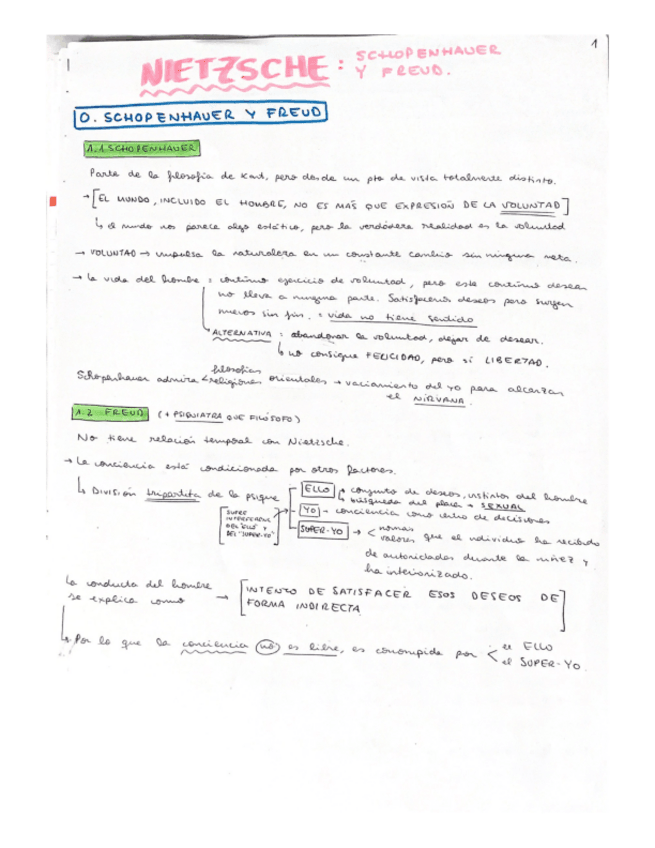 1
NIETZSCHE: SCHOPENHAUER
Y FREUD.
0. SCHOPENHAUER Y FREUD
1.1 SCHOPENHAUER
Parte de la filosofía de Kant, pero desde un pto de vista totalmente distinto.
→ [EL MUNDO, INCLUIDO EL HOMBRE, NO ES MÁS QUE EXPRESIÓN DE LA VOLUNTAD]
↳ el mundo nos parece algo estático, pero la verdadera realidad es la voluntad
→ VOLUNTAD → impulsa la naturaleza en un constante cambio sin ninguna meta.
→ La vida del hombre = continuo ejercicio de voluntad, pero este continuo desear
no lleva a ninguna parte. Satisfacemos deseos pero surgen
nuevos sin fin. = vida no tiene sentido
↳ ALTERNATIVA = abandonar la voluntad, dejar de desear.
↳ no consigue FELICIDAD, pero sí LIBERTAD.
Schopenhauer admira < filosofías
religiones orientales → vaciamiento del yo para alcanzar
el NIRVANA.
1.2 FREUD (+ PSIQUIATRA QUE FILÓSOFO)
No tiene relación temporal con Nietzsche.
→ La conciencia está condicionada por otros factores.
↳ División tripartita de la psique
ELLO → conjunto de deseos, instintos del hombre
↳ búsqueda del placer → SEXUAL
YO → conciencia como centro de decisiones
[SUFRE INTERFERENCIAS
DEL "ELLO" Y
DEL "SUPER-YO"]
SUPER-YO → < normas
valores que el individuo ha recibido
de autoridades durante la niñez y
ha interiorizado.
La conducta del hombre
se explica como → [INTENTO DE SATISFACER ESOS DESEOS DE
FORMA INDIRECTA]
↳ Por lo que la conciencia no es libre, es corrompida por < el ELLO
el SUPER-YO.